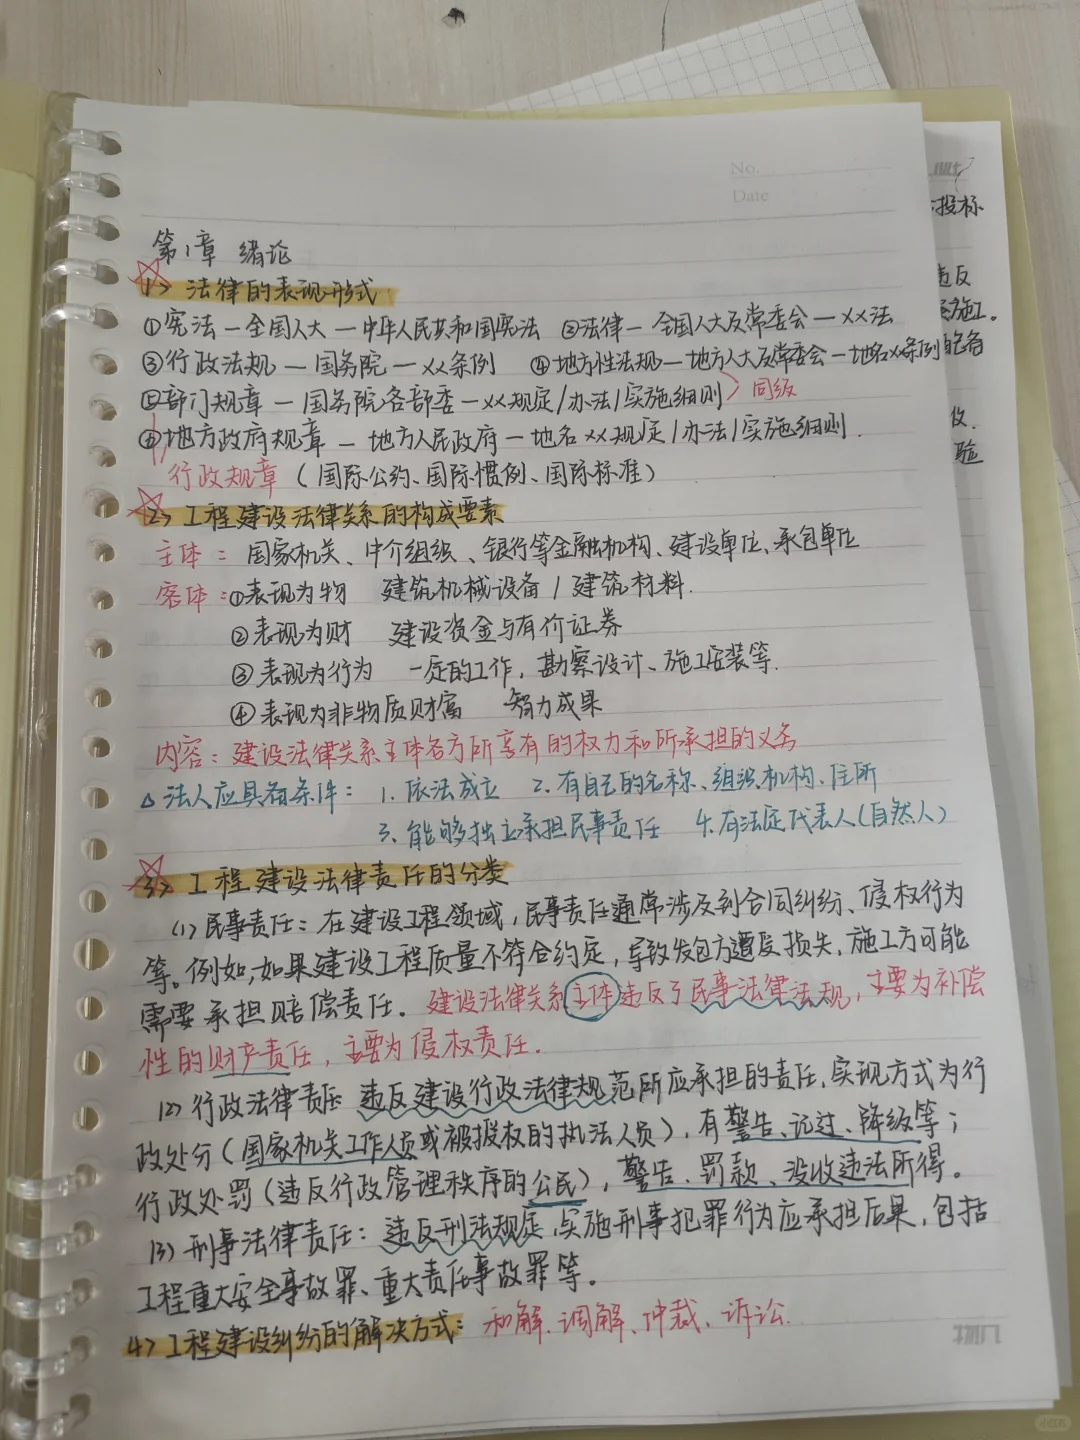 No.
Date
第1章 绪论
1> 法律的表现形式
①宪法—全国人大—中华人民共和国宪法 ②法律—全国人大及常委会—××法
③行政法规—国务院—××条例 ④地方性法规—地方人大及常委会—地名××条例
⑤部门规章—国务院各部委—××规定/办法/实施细则 同级
⑥地方政府规章—地方人民政府—地名××规定/办法/实施细则.
行政规章(国际公约、国际惯例、国际标准)
2> 工程建设法律关系的构成要素
主体: 国家机关、中介组织、银行等金融机构、建设单位、承包单位
客体:①表现为物 建筑机械设备/建筑材料.
②表现为财 建设资金与有价证券
③表现为行为 一定的工作,勘察设计、施工安装等.
④表现为非物质财富 智力成果
内容:建设法律关系主体各方所享有的权力和所承担的义务
△法人应具备条件: 1.依法成立 2.有自己的名称、组织机构、住所
3.能够独立承担民事责任 4.有法定代表人(自然人)
3> 工程建设法律责任的分类
(1)民事责任:在建设工程领域,民事责任通常涉及到合同纠纷、侵权行为
等。例如,如果建设工程质量不符合约定,导致发包方遭受损失,施工方可能
需要承担赔偿责任. 建设法律关系主体违反了民事法律法规,主要为补偿
性的财产责任,主要为侵权责任.
(2)行政法律责任 违反建设行政法律规范所应承担的责任,实现方式为行
政处分(国家机关工作人员或被授权的执法人员),有警告、记过、降级等;
行政处罚(违反行政管理秩序的公民),警告、罚款、没收违法所得。
(3)刑事法律责任:违反刑法规定,实施刑事犯罪行为应承担后果,包括
工程重大安全事故罪、重大责任事故罪等。
4>工程建设纠纷的解决方式: 和解、调解、仲裁、诉讼.
投标
违反
施工。
配备
验
小红书